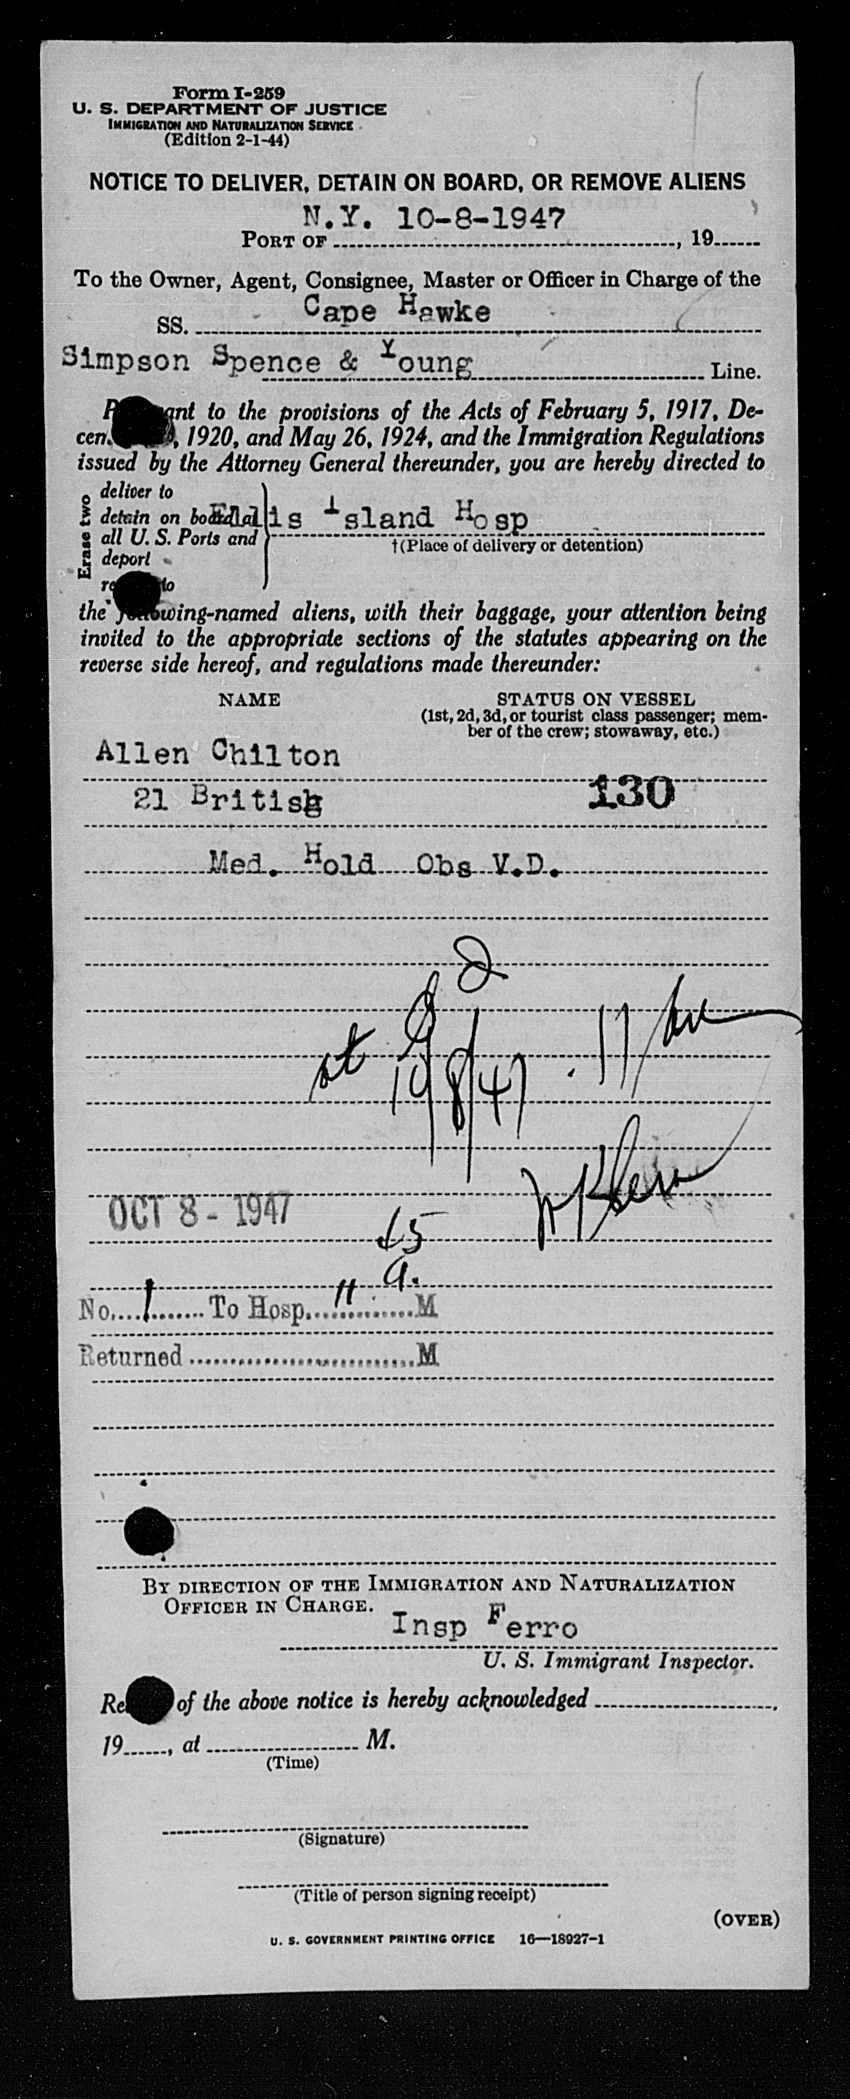 Form I-259
U. S. DEPARTMENT OF JUSTICE
IMMIGRATION AND NATURALIZATION SERVICE
(Edition 2-1-44)
NOTICE TO DELIVER, DETAIN ON BOARD, OR REMOVE ALIENS
N.Y. 10-8-1947
PORT OF , 19
To the Owner, Agent, Consignee, Master or Officer in Charge of the
SS. Cape Hawke
Simpson Spence & Young Line.
to the provisions of the Acts of February 5, 1917, De-
1920, and May 26, 1924, and the Immigration Regulations
issued by the Attorney General thereunder, you are hereby directed to
Erase two
deliver to
detain on board at
all U. S. Ports and
deport
Ellis Island Hosp
†(Place of delivery or detention)
the following-named aliens, with their baggage, your attention being
invited to the appropriate sections of the statutes appearing on the
reverse side hereof, and regulations made thereunder:
NAME STATUS ON VESSEL
(1st, 2d, 3d, or tourist class passenger; mem-
ber of the crew; stowaway, etc.)
Allen Chilton
21 British 130
Med. Hold Obs V.D.
at
10/8/47
OCT 8 - 1947
45
a.
No. 1 To Hosp. 11 M
Returned M
BY DIRECTION OF THE IMMIGRATION AND NATURALIZATION
OFFICER IN CHARGE.
Insp Ferro
U. S. Immigrant Inspector.
of the above notice is hereby acknowledged
19 , at M.
(Time)
(Signature)
(Title of person signing receipt)
(OVER)
U. S. GOVERNMENT PRINTING OFFICE 16—18927-1